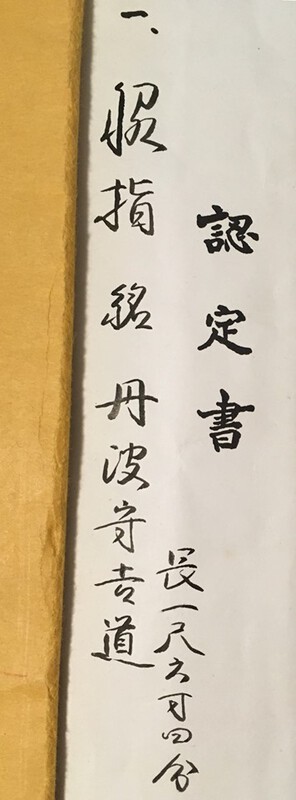 認定書
一、脇指 銘 丹波守吉道
長一尺六寸四分